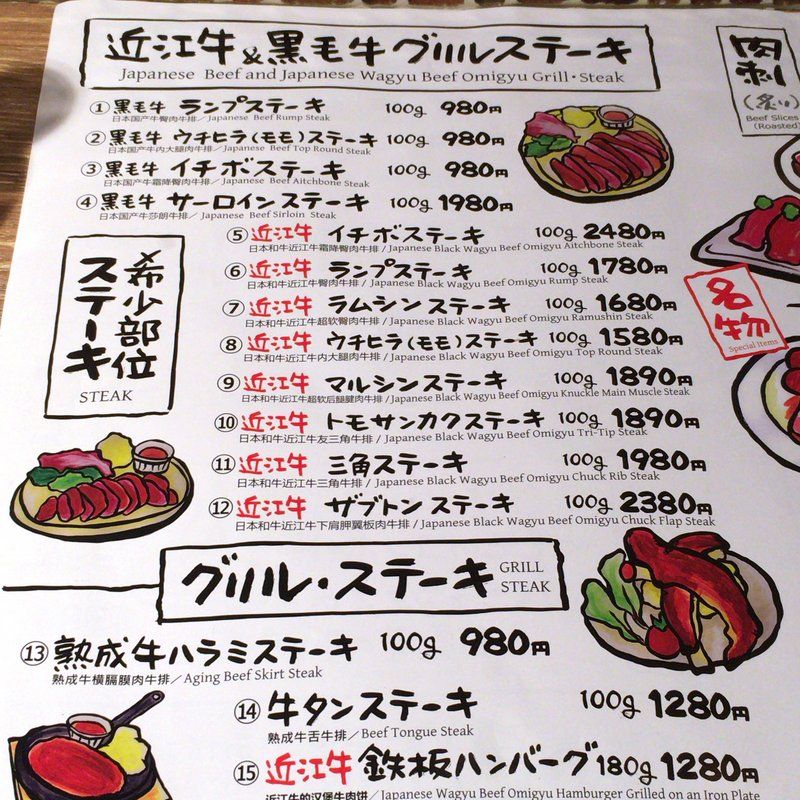 近江牛&黒毛牛グリルステーキ
Japanese Beef and Japanese Wagyu Beef Omigyu Grill・Steak
肉刺
(炙り)
Beef Slices
(Roasted)
①黒毛牛 ランプステーキ 100g 980円
日本国产牛臀肉牛排／Japanese Beef Rump Steak
②黒毛牛 ウチヒラ(モモ)ステーキ 100g 980円
日本国产牛内大腿肉牛排／Japanese Beef Top Round Steak
③黒毛牛 イチボステーキ 100g 980円
日本国产牛霜降臀肉牛排／Japanese Beef Aitchbone Steak
④黒毛牛 サーロインステーキ 100g 1980円
日本国产牛莎朗牛排／Japanese Beef Sirloin Steak
希少部位
ステーキ
STEAK
⑤近江牛 イチボステーキ 100g 2480円
日本和牛近江牛霜降臀肉牛排 / Japanese Black Wagyu Beef Omigyu Aitchbone Steak
⑥近江牛 ランプステーキ 100g 1780円
日本和牛近江牛臀肉牛排 / Japanese Black Wagyu Beef Omigyu Rump Steak
⑦近江牛 ラムシンステーキ 100g 1680円
日本和牛近江牛超软臀肉牛排 / Japanese Black Wagyu Beef Omigyu Ramushin Steak
⑧近江牛 ウチヒラ(モモ)ステーキ 100g 1580円
日本和牛近江牛内大腿肉牛排 / Japanese Black Wagyu Beef Omigyu Top Round Steak
⑨近江牛 マルシンステーキ 100g 1890円
日本和牛近江牛超软后腿腱肉牛排 / Japanese Black Wagyu Beef Omigyu Knuckle Main Muscle Steak
⑩近江牛 トモサンカクステーキ 100g 1890円
日本和牛近江牛友三角牛排 / Japanese Black Wagyu Beef Omigyu Tri-Tip Steak
⑪近江牛 三角ステーキ 100g 1980円
日本和牛近江牛三角牛排 / Japanese Black Wagyu Beef Omigyu Chuck Rib Steak
⑫近江牛 ザブトンステーキ 100g 2380円
日本和牛近江牛下肩胛翼板肉牛排 / Japanese Black Wagyu Beef Omigyu Chuck Flap Steak
名物
Special Items
グリル・ステーキ
GRILL
STEAK
⑬熟成牛ハラミステーキ 100g 980円
熟成牛横膈膜肉牛排／Aging Beef Skirt Steak
⑭牛タンステーキ 100g 1280円
熟成牛舌牛排／Beef Tongue Steak
⑮近江牛 鉄板ハンバーグ 180g 1280円
近江牛的汉堡牛肉饼／Japanese Wagyu Beef Omigyu Hamburger Grilled on an Iron Plate